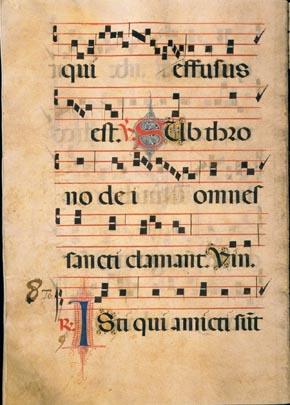 qui effusus
est. V Sub thro
no dei omnes
sancti clamant. Vin.
8 To.
R. Isti qui amicti sūt